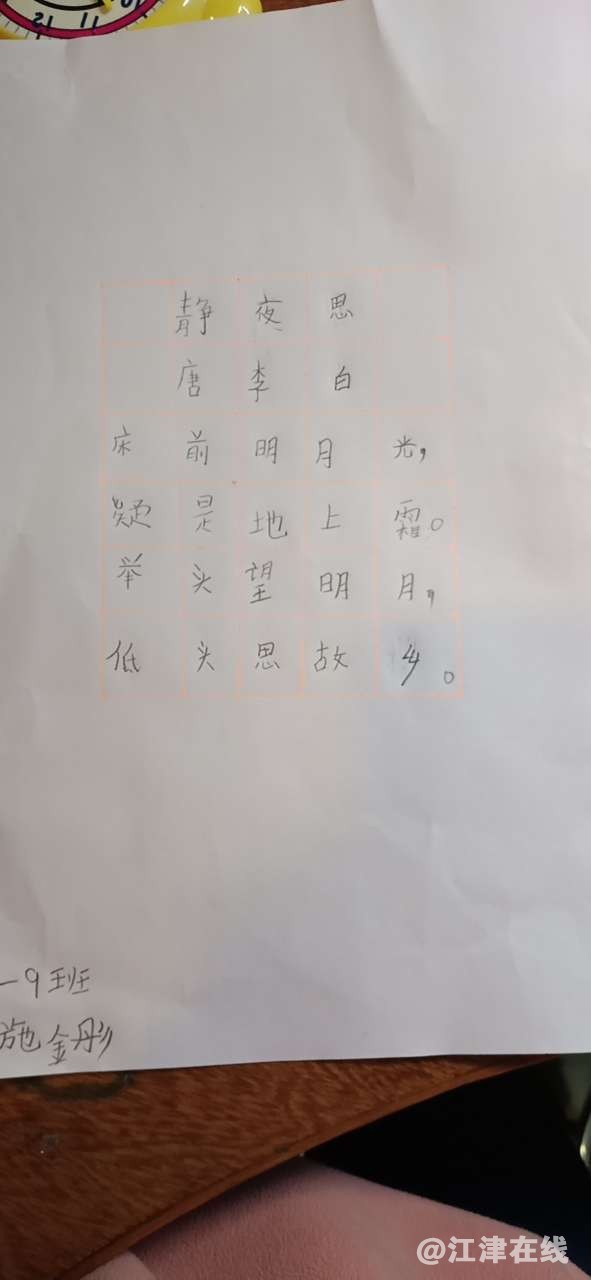 静夜思
唐李白
床前明月光，
疑是地上霜。
举头望明月，
低头思故乡。
一9班
施金彤
@江津在线